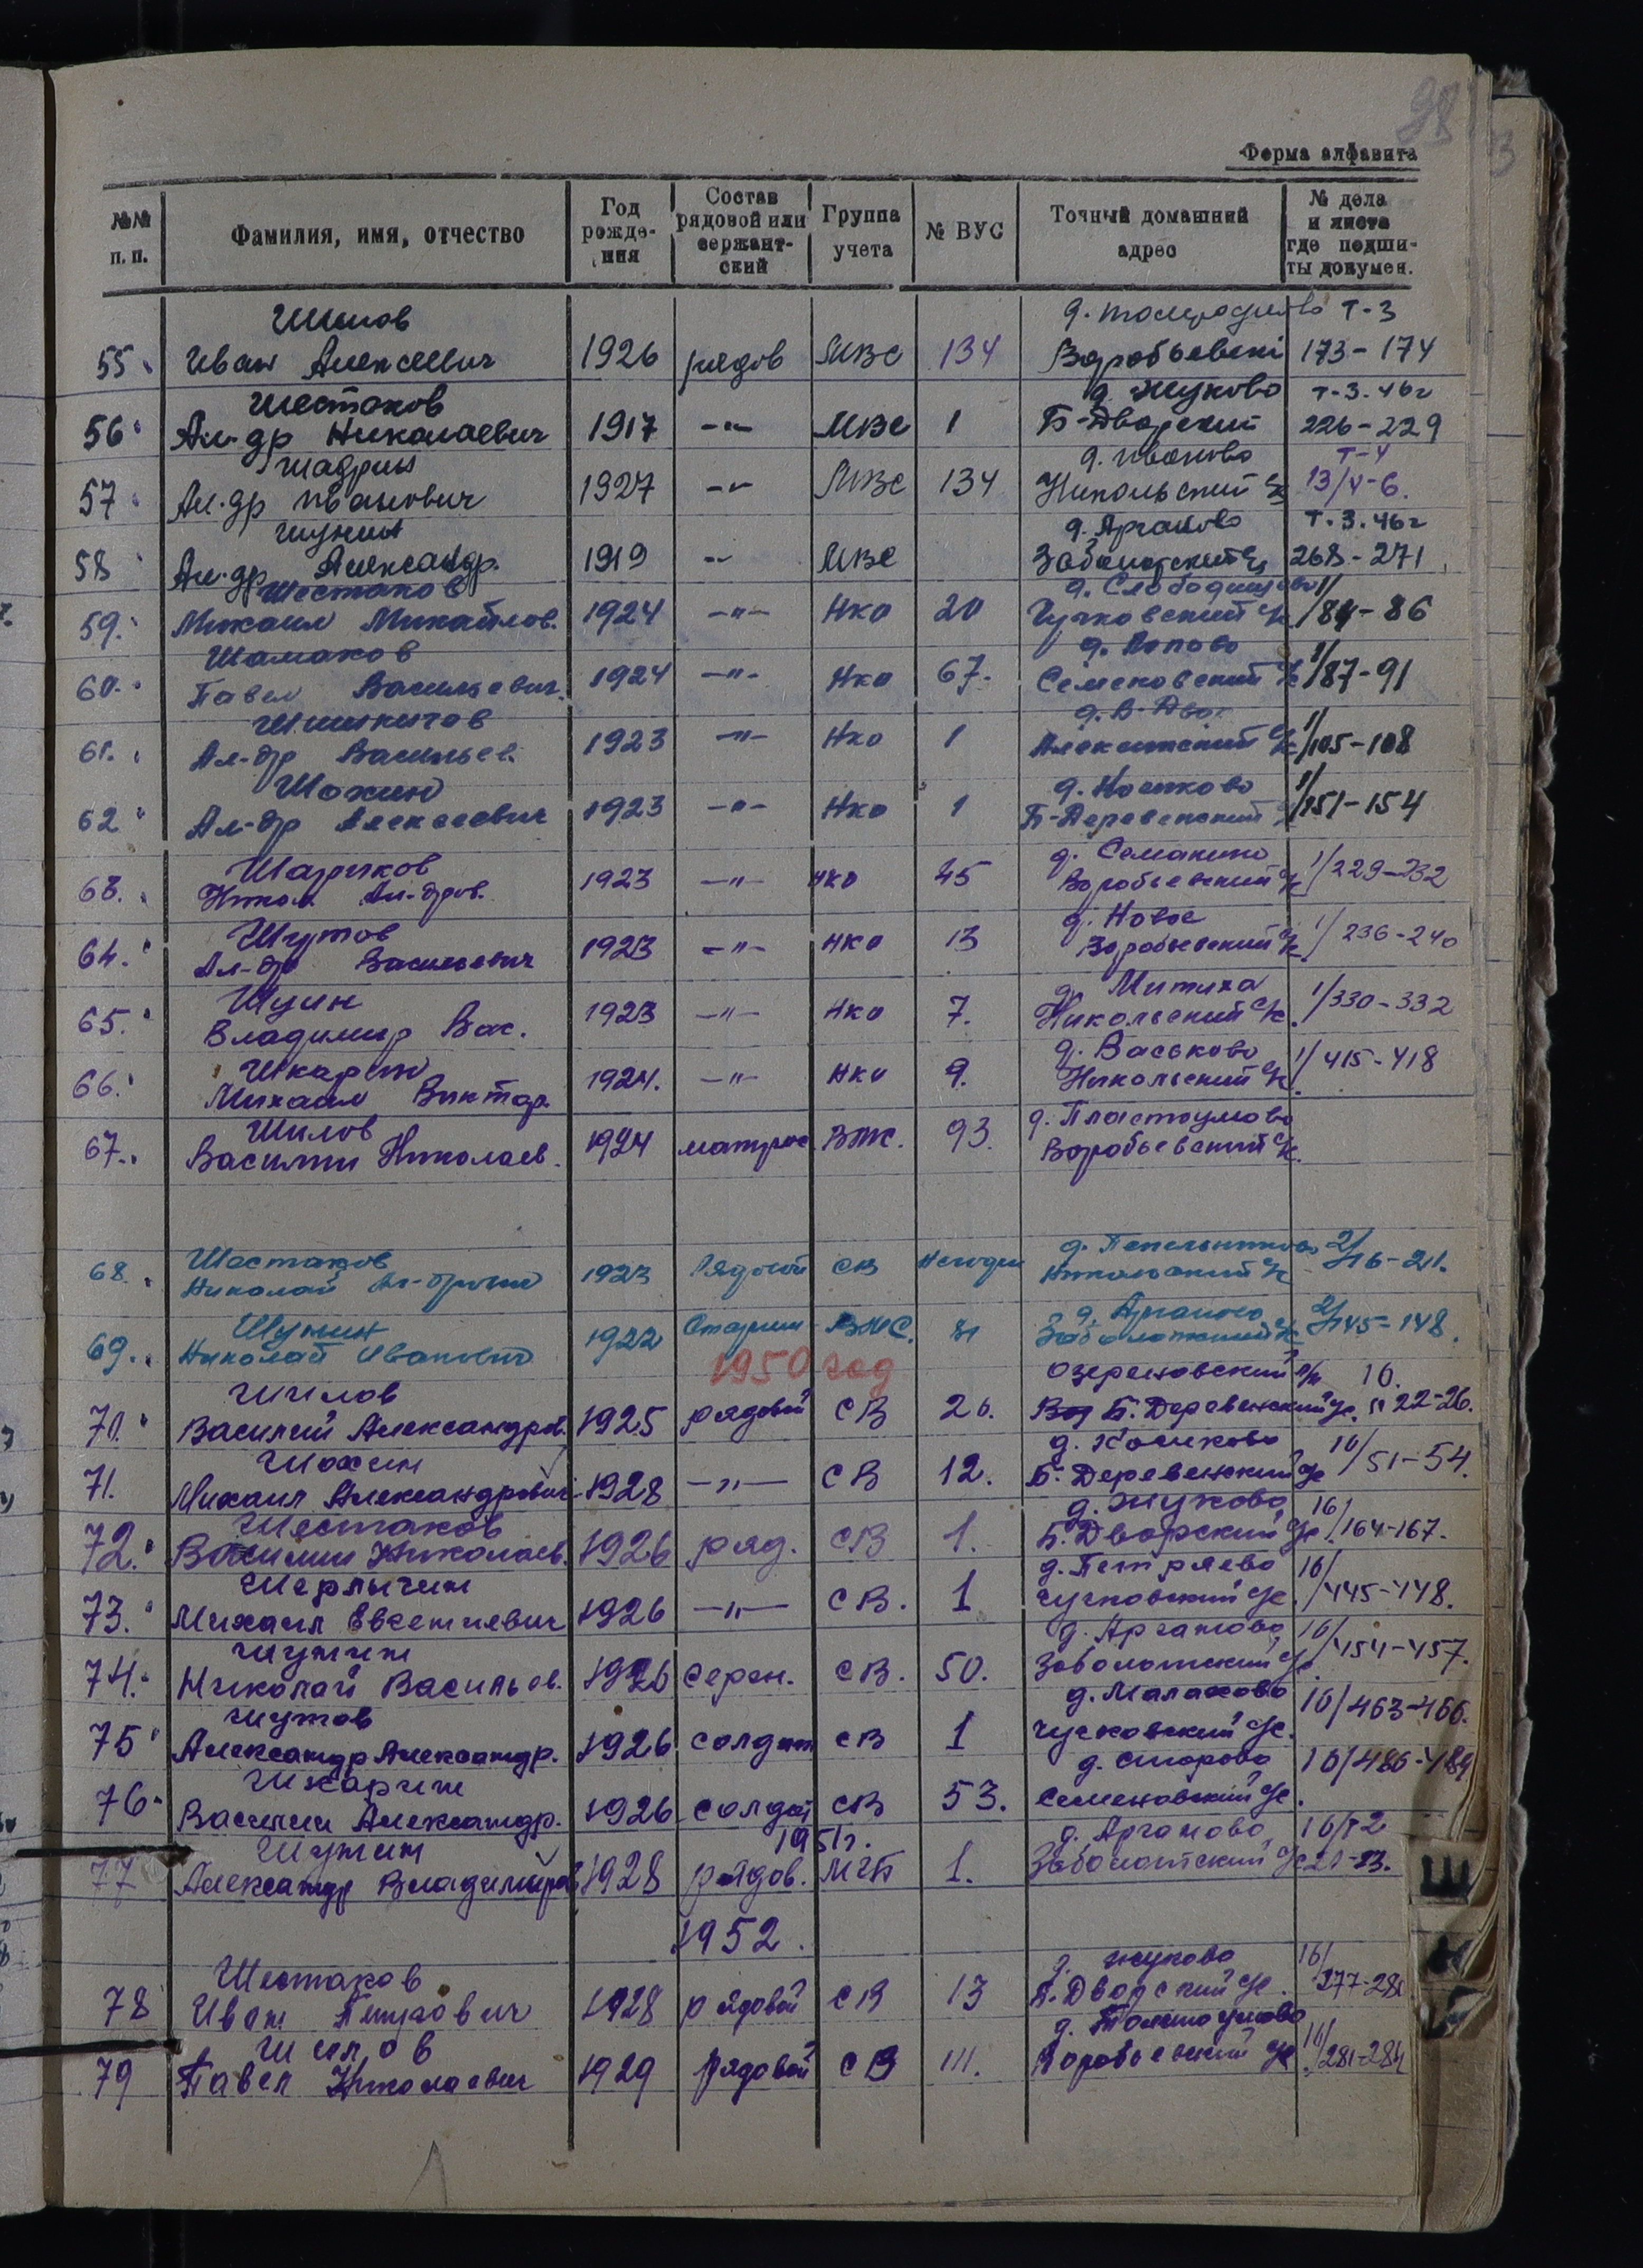 98
Форма алфавита
№№ п. п. Фамилия, имя, отчество Год рожде- ния Состав рядовой или сержант- ский Группа учета № ВУС Точный домашний адрес № дела и листа где подши- ты докумен.
Шилов Т-3
55 Иван Алексеевич 1926 рядов МВС 134 Воробьевски 173-174
Шестаков д. Жуково т-3.46г
56 Ал-др Николаевич 1917 -"- МВС 1 Б-Дворский 226-229
Шадрин д. Иваково Т-4
57 Ал-др Иванович 1927 -"- МВС 134 Никольский с/с 13/V-6.
Шунин д. Арганово Т.3.46г
58 Ал-др Александр. 1919 -"- МВС Заболотский с/с 268-271
Шестаков д. Слободищево 1/
59. Михаил Михайлов. 1924 -"- НКО 20 Чучковский с/с 84-86
Шамаков д. Попово 1/
60. Павел Васильевич. 1924 -"- НКО 67. Семеновский с/с 87-91
д. В-Двор 1/
61. Ал-др Васильев. 1923 -"- НКО 1 с/с 105-108
Шохин 1/
62 Ал-др Алексеевич 1923 -"- НКО 1 Б-Деревенский 151-154
Шариков д. Семакино
63. Никол. Ал-дров. 1923 -"- НКО 45 Воробьевский с/с 1/229-232
Шутов д. Новое
64. Ал-др Васильевич 1923 -"- НКО 13 Воробьевский с/с 1/236-240
Шуин д. Митиха
65. Владимир Вас. 1923 -"- НКО 7. Никольский с/с 1/330-332
Шкарин д. Васьково
66. Михаил Виктор. 1924. -"- НКО 9. Никольский с/с 1/415-418
Шилов
67. Василий Николаев. 1924 матрос 93. Воробьевский с/с.
Шестаков 2/
68. Николай Ал-дрович 1923 Рядовой СВ Никольский с/с 16-21.
Шунин д. Арганово 2/
69. Николай Иванович 1922 Заболотский с/с 145-148.
1950 год
Шилов 16.
70. Василий Александров. 1925 рядовой СВ 20. Б. Деревенский с/с. 22-26.
Шохин 16/
71. Михаил Александрович 1928 -"- СВ 12. Б. Деревенский с/с 51-54.
Шестаков д. Жуково 16/
72. Василий Николаев. 1926 ряд. СВ 1. Б. Дворский с/с 164-167.
д. Петряево 16/
73. Михаил Евгениевич 1926 -"- СВ. 1 Чучковский с/с 445-448.
Шунин д. Арганово 16/
74. Николай Васильев. 1926 серж. СВ. 50. Заболотский с/с 454-457.
Шутов д. Малахово
75 Александр Александр. 1926 солдат СВ 1 Чучковский с/с. 16/463-466.
Шкарин
76. Василий Александр. 1926 солдат СВ 53. Семеновский с/с. 16/486-489
1951г.
Шунин д. Арганово 16/т2
77 Александр Владимиров 1928 рядов. МГБ 1. Заболотский с/с 21-23.
1952.
Шестаков д. Жуково 16/
78 Иван Петрович 1928 рядовой СВ 13 Б. Дворский с/с.
Шилов 16/
79 Павел Николаевич 1929 рядовой СВ 111. Воробьевский с/с 281-284